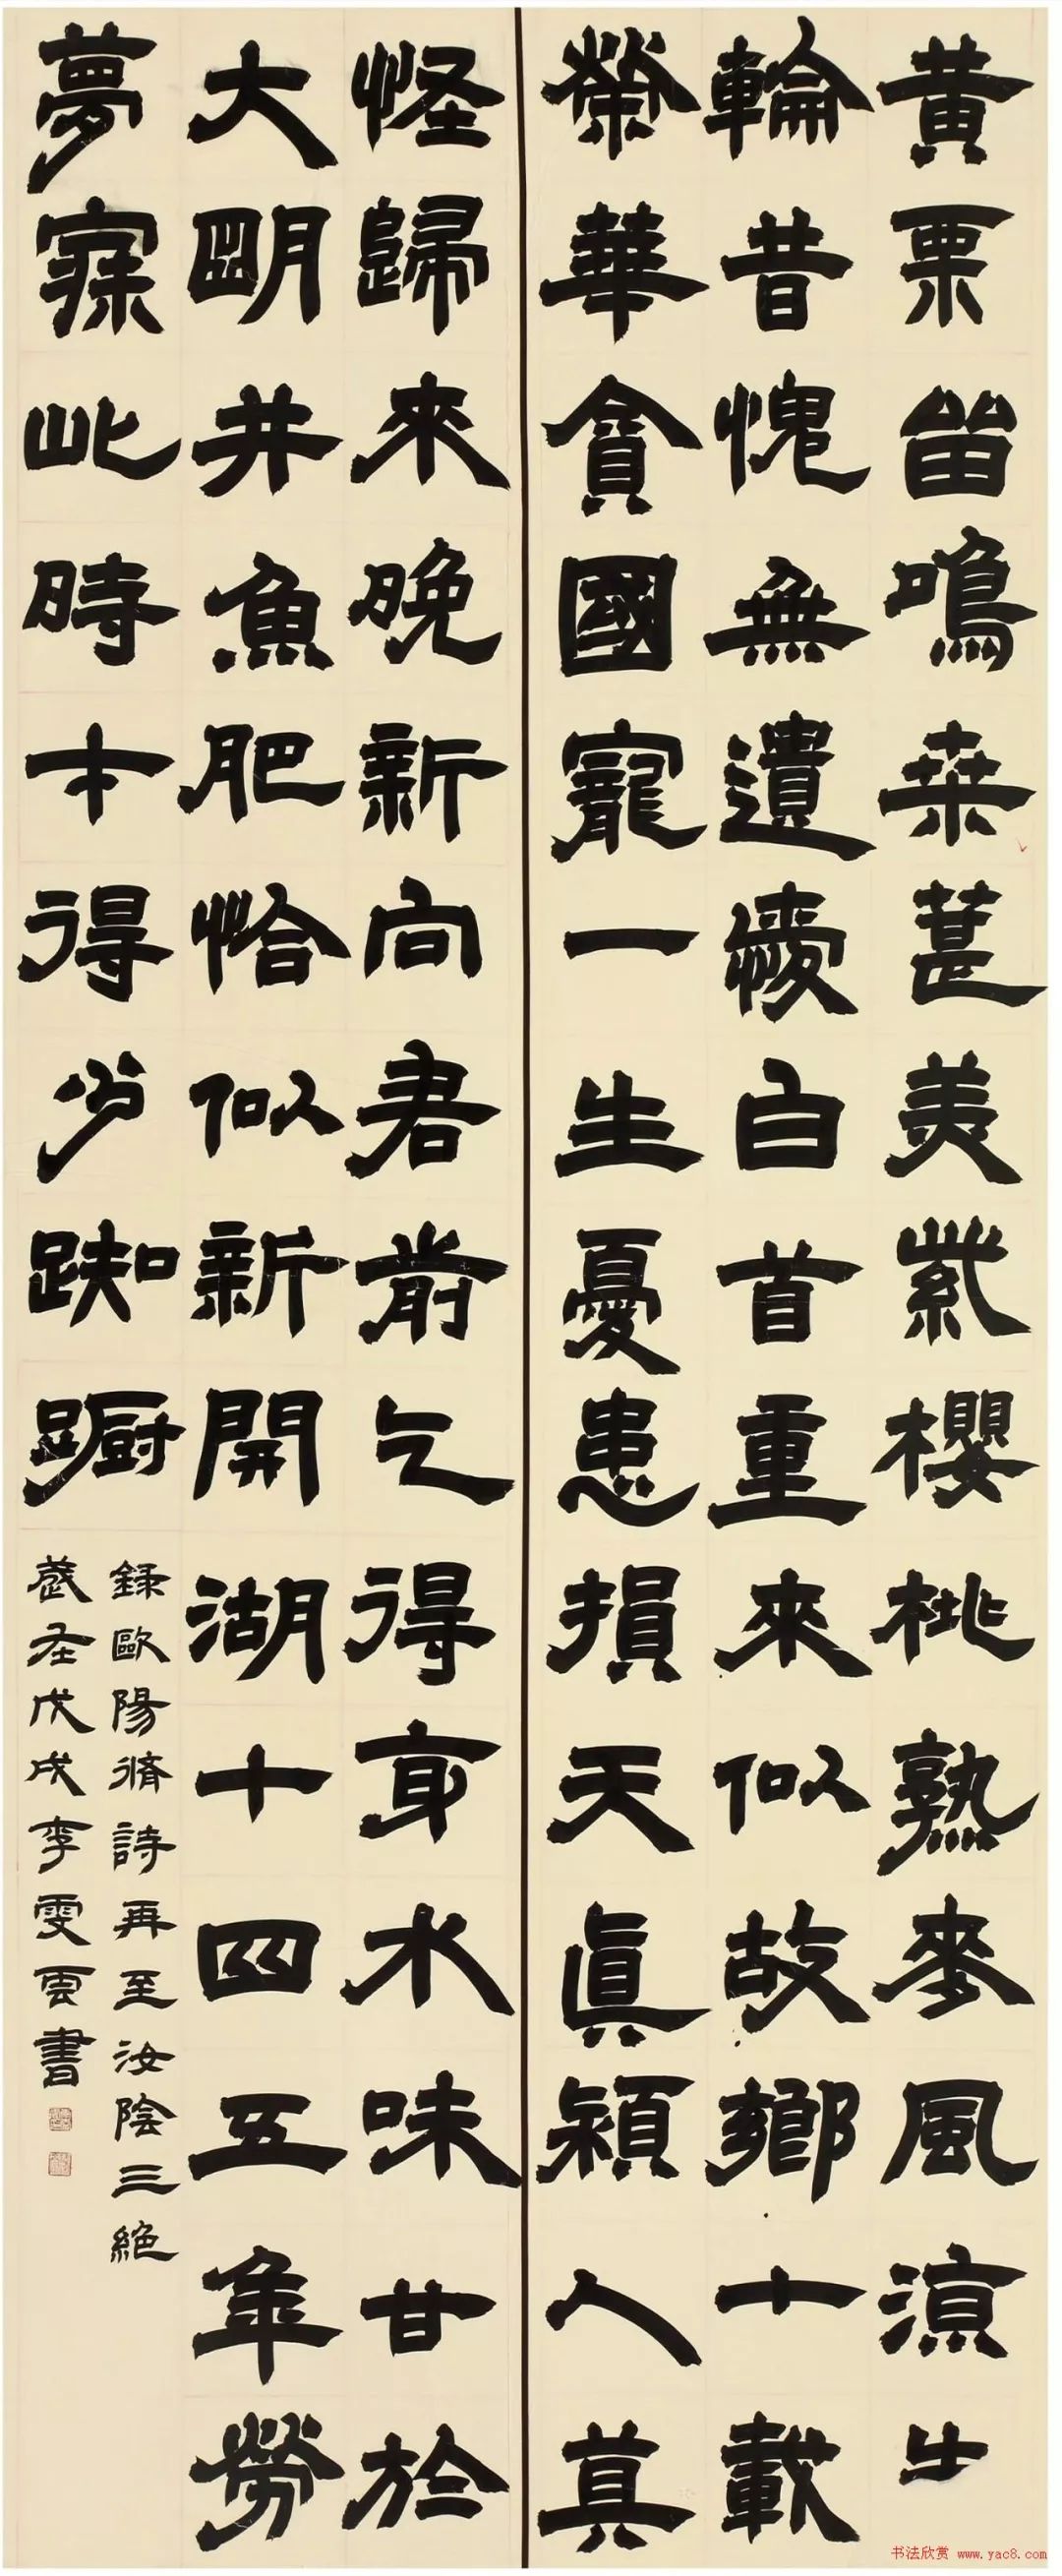 黃栗留鳴桒葚美紫櫻桃熟麥風涼朱
輪昔愧無遺懓白首重來似故鄉十載
榮華貪國寵一生憂患損天眞潁人莫
怪歸來晚新向君前乞得身水味甘於
大明井魚肥恰似新開湖十四五年勞
夢寐此時才得少踟躕
錄歐陽脩詩再至汝陰三絕
歲在戊戌李雯雲書
书法欣赏 www.yac8.com